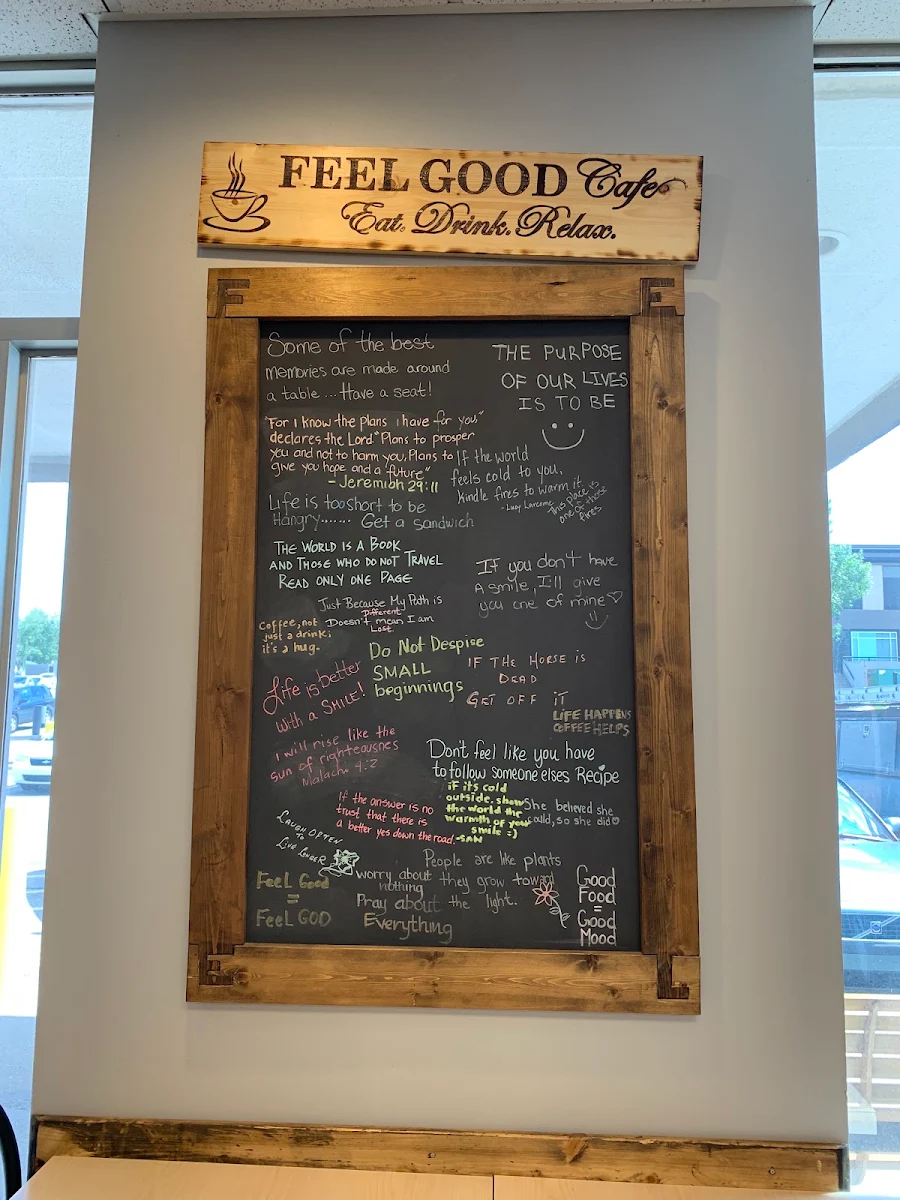 FEEL GOOD Cafe
Eat. Drink. Relax.
F
E
Some of the best
memories are made around
a table ... Have a seat!
THE PURPOSE
OF OUR LIVES
IS TO BE
"For I know the plans i have for you"
declares the Lord "Plans to prosper
you and not to harm you, Plans to
give you hope and a "future"
- Jeremiah 29:11
If the world
feels cold to you,
kindle fires to warm it.
- Lucy Larcom
This place is
one of those
fires
Life is too short to be
Hangry....... Get a sandwich
THE WORLD IS A BOOK
AND THOSE WHO DO NOT TRAVEL
READ ONLY ONE PAGE
If you don't have
A smile, I'll give
you one of mine
Just Because My Path is
Different
Doesn't mean I am
Lost.
Coffee, not
just a drink;
it's a hug.
Do Not Despise
SMALL
beginnings
IF THE HORSE IS
DEAD
GET OFF IT
Life is better
with a SMILE!
LIFE HAPPENS
COFFEE HELPS
I will rise like the
sun of righteousnes
Malachi 4:2
Don't feel like you have
to follow someone elses Recipe
If the answer is no
trust that there is
a better yes down the road.
iF its cold
outside, show
the world the
warmth of your
smile =)
-SAW
She believed she
could, so she did
LAUGH OFTEN
TO
LIVE LONGER
People are like plants
they grow toward
the light.
worry about
nothing
Pray about
Everything
Feel Good
=
Feel GOD
Good
Food
=
Good
Mood
E
L